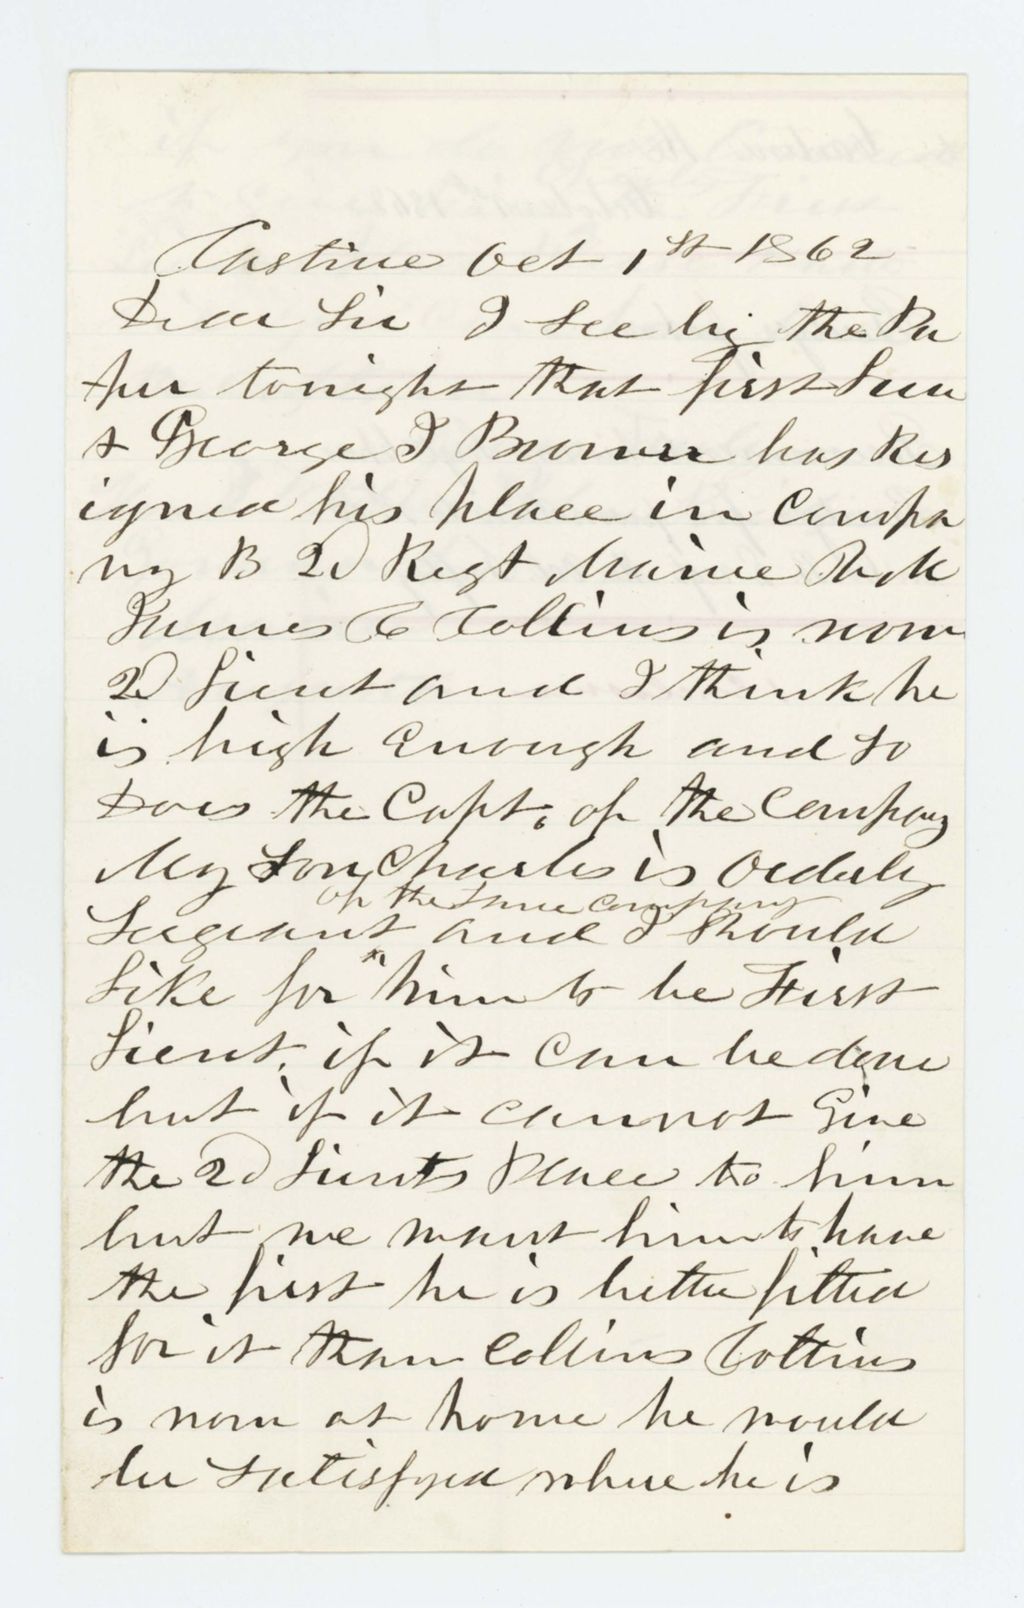 Castine Oct 1st 1862
Dear Sir I see by the Pa
per tonight that first Lieu
t George I Brown has Res
igned his place in Compa
ny B 2d Regt Maine
James C Collins is now
2d Lieut and I think he
is high Enough and so
Does the Capt. of the Company
My Son Charles is Orderly
of the Same company
Sergeant and I Should
Like for him to be First
Lieut. if it can be done
but if it cannot Give
the 2d Lieuts Place to him
but we want him to have
the first he is better fitted
for it than Collins Collins
is now at home he would
be satisfyed where he is